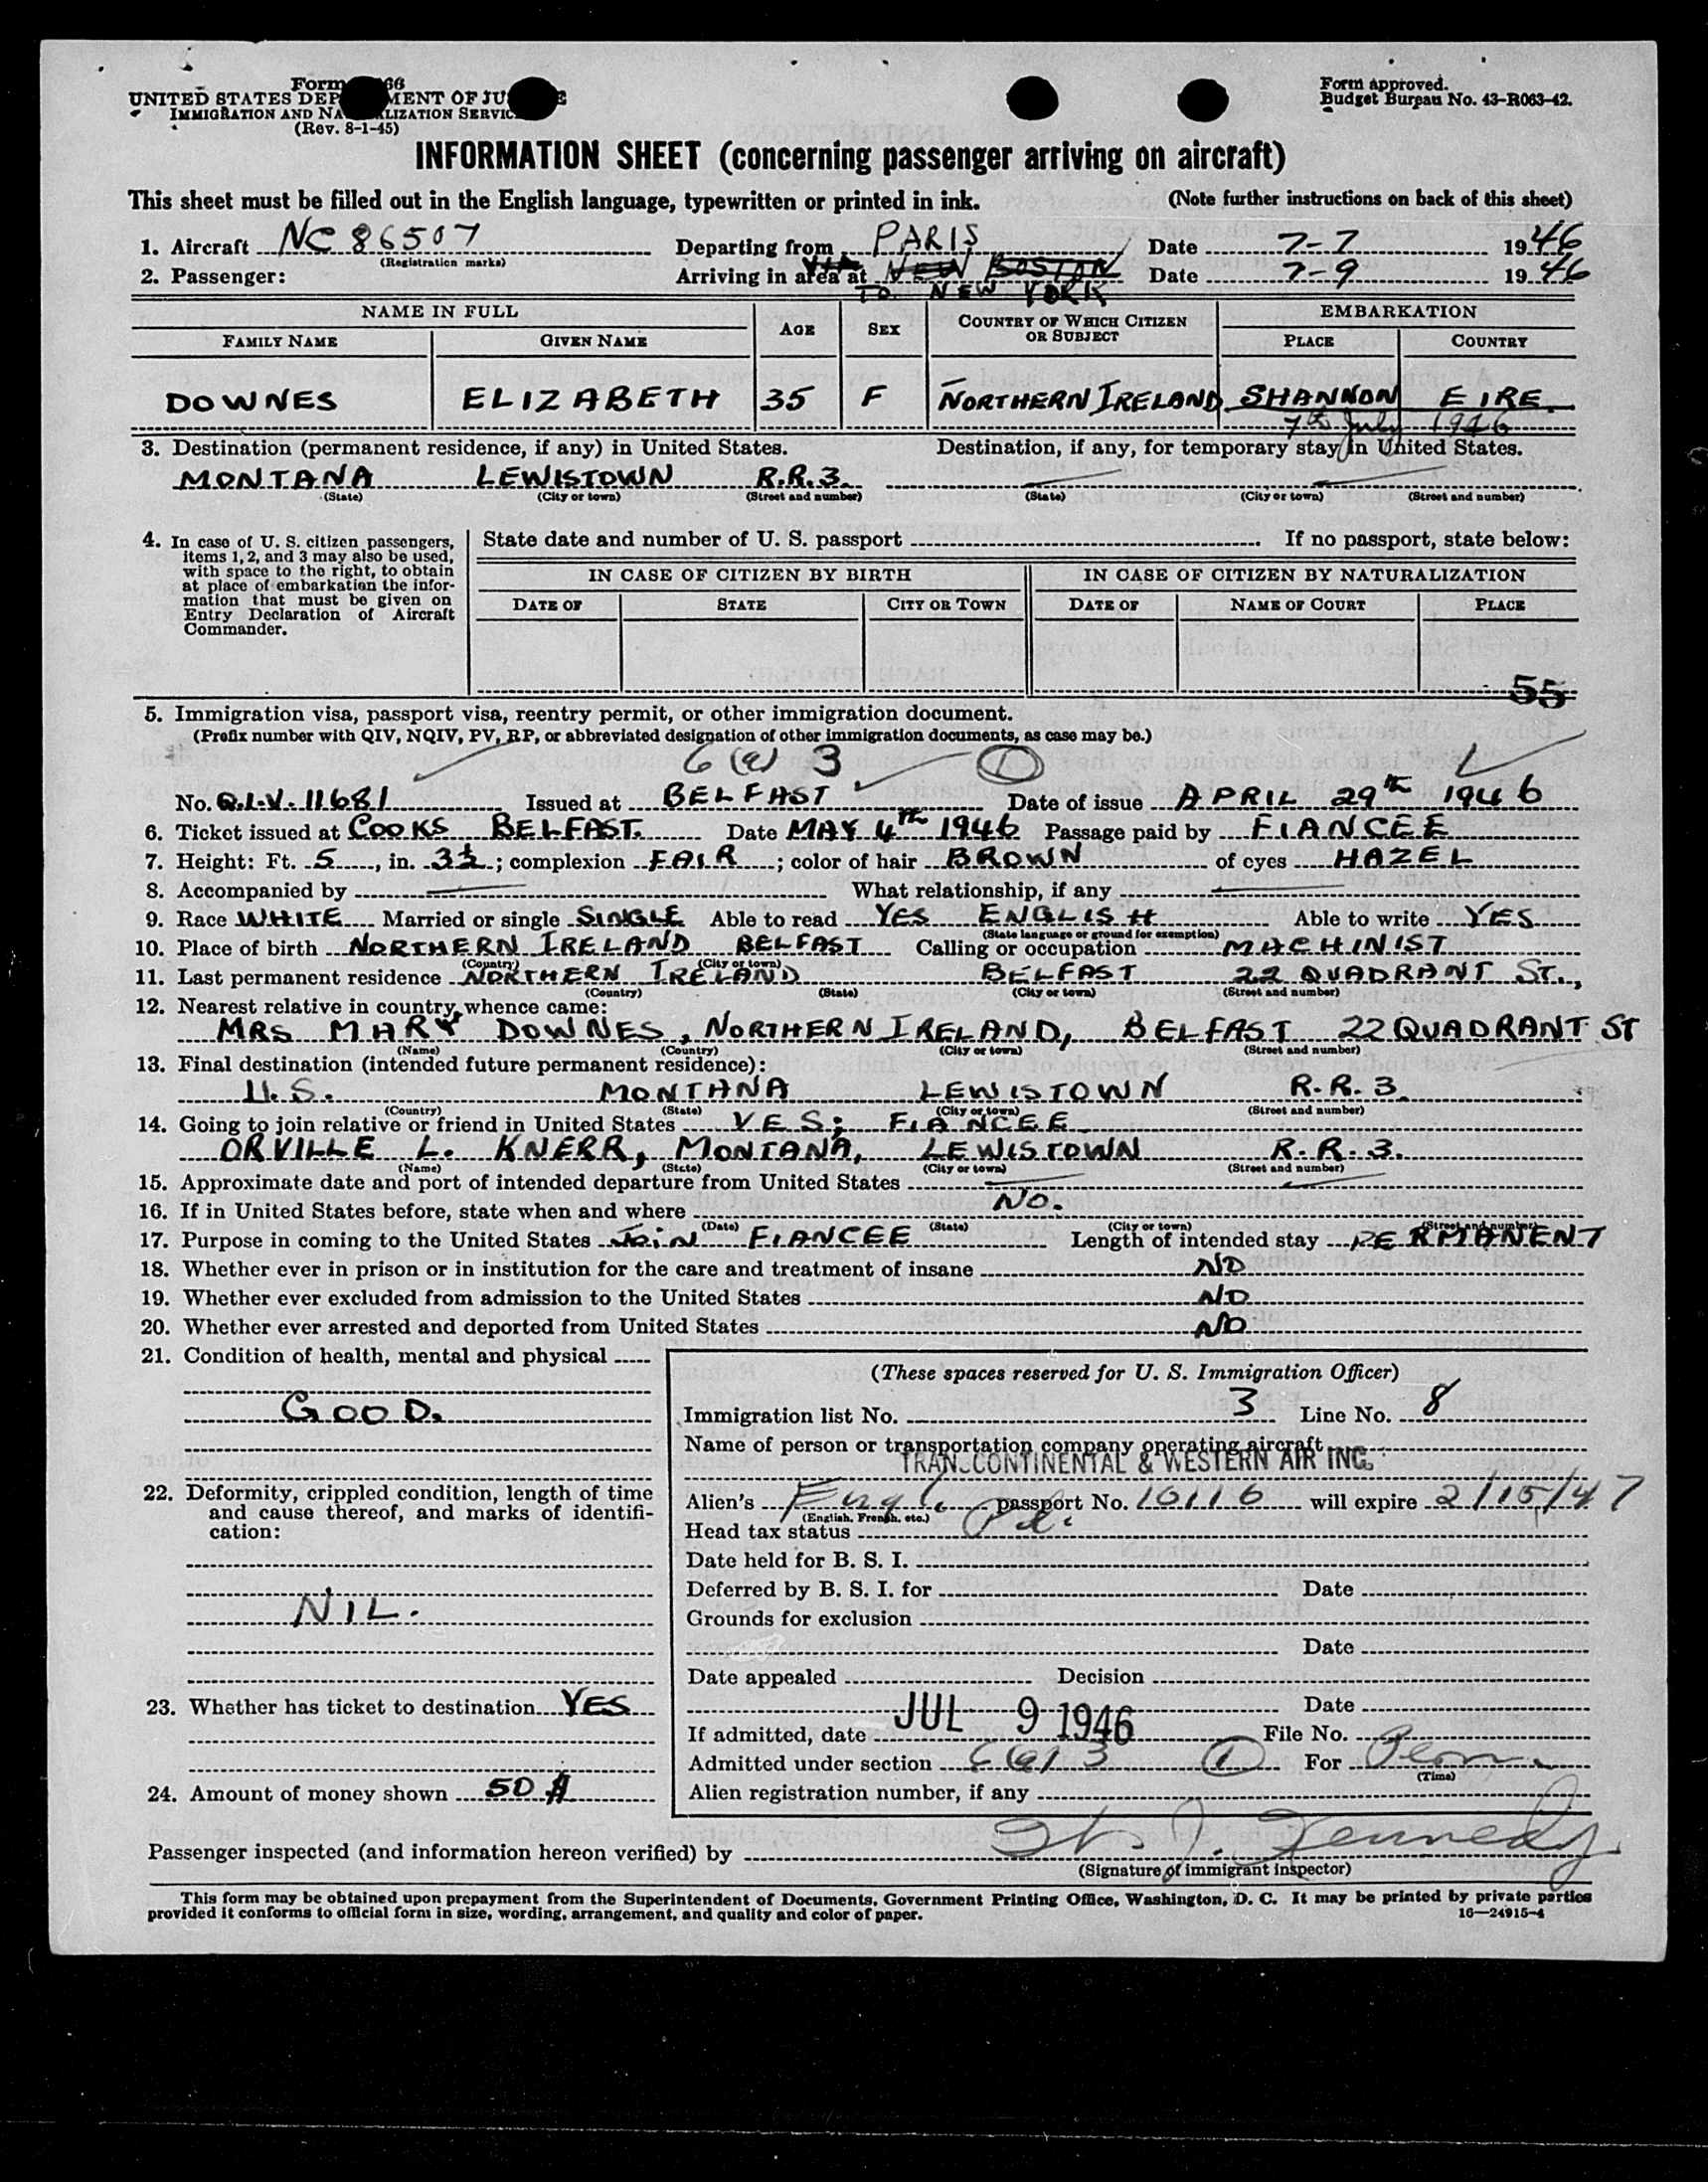 Form 66
UNITED STATES DEP MENT OF JU E
IMMIGRATION AND NA LIZATION SERVIC
(Rev. 8-1-45)
Form approved.
Budget Bureau No. 43-R063-42.
INFORMATION SHEET (concerning passenger arriving on aircraft)
This sheet must be filled out in the English language, typewritten or printed in ink. (Note further instructions on back of this sheet)
1. Aircraft NC 86507 Departing from PARIS Date 7-7 1946
(Registration marks)
2. Passenger: Arriving in area at VIA NEW BOSTON Date 7-9 1946
TO NEW YORK
NAME IN FULL AGE SEX COUNTRY OF WHICH CITIZEN OR SUBJECT EMBARKATION
FAMILY NAME GIVEN NAME PLACE COUNTRY
DOWNES ELIZABETH 35 F NORTHERN IRELAND SHANNON EIRE.
7th July 1946
3. Destination (permanent residence, if any) in United States. Destination, if any, for temporary stay in United States.
MONTANA LEWISTOWN R.R.3.
(State) (City or town) (Street and number) (State) (City or town) (Street and number)
4. In case of U. S. citizen passengers, items 1, 2, and 3 may also be used, with space to the right, to obtain at place of embarkation the information that must be given on Entry Declaration of Aircraft Commander.
State date and number of U. S. passport If no passport, state below:
IN CASE OF CITIZEN BY BIRTH IN CASE OF CITIZEN BY NATURALIZATION
DATE OF STATE CITY OR TOWN DATE OF NAME OF COURT PLACE
55
5. Immigration visa, passport visa, reentry permit, or other immigration document.
(Prefix number with QIV, NQIV, PV, RP, or abbreviated designation of other immigration documents, as case may be.)
6 (a) 3 1
No. Q.I.V. 11681 Issued at BELFAST Date of issue APRIL 29th 1946
6. Ticket issued at COOKS BELFAST. Date MAY 4TH 1946 Passage paid by FIANCEE
7. Height: Ft. 5, in. 3½; complexion FAIR; color of hair BROWN of eyes HAZEL
8. Accompanied by What relationship, if any
9. Race WHITE Married or single SINGLE Able to read YES ENGLISH Able to write YES
(State language or ground for exemption)
10. Place of birth NORTHERN IRELAND BELFAST Calling or occupation MACHINIST
(Country) (City or town)
11. Last permanent residence NORTHERN IRELAND BELFAST 22 QUADRANT ST.,
(Country) (State) (City or town) (Street and number)
12. Nearest relative in country whence came:
MRS MARY DOWNES, NORTHERN IRELAND, BELFAST 22 QUADRANT ST
(Name) (Country) (City or town) (Street and number)
13. Final destination (intended future permanent residence):
U.S. MONTANA LEWISTOWN R.R.3.
(Country) (State) (City or town) (Street and number)
14. Going to join relative or friend in United States YES; FIANCEE
ORVILLE L. KNERR, MONTANA, LEWISTOWN R.R.3.
(Name) (State) (City or town) (Street and number)
15. Approximate date and port of intended departure from United States
16. If in United States before, state when and where NO.
(Date) (State) (City or town) (Street and number)
17. Purpose in coming to the United States JOIN FIANCEE Length of intended stay PERMANENT
18. Whether ever in prison or in institution for the care and treatment of insane NO
19. Whether ever excluded from admission to the United States NO
20. Whether ever arrested and deported from United States NO
21. Condition of health, mental and physical
GOOD.
22. Deformity, crippled condition, length of time and cause thereof, and marks of identification:
NIL.
23. Whether has ticket to destination YES
24. Amount of money shown 50 $
(These spaces reserved for U. S. Immigration Officer)
Immigration list No. 3 Line No. 8
Name of person or transportation company operating aircraft
TRANSCONTINENTAL & WESTERN AIR INC.
Alien's Engl. passport No. 10116 will expire 2/15/47
(English, French, etc.)
Head tax status Pd.
Date held for B. S. I.
Deferred by B. S. I. for Date
Grounds for exclusion
Date
Date appealed Decision
Date
If admitted, date JUL 9 1946 File No.
Admitted under section 6(a)3 1 For Perm.
(Time)
Alien registration number, if any
Passenger inspected (and information hereon verified) by J. Kennedy
(Signature of immigrant inspector)
This form may be obtained upon prepayment from the Superintendent of Documents, Government Printing Office, Washington, D. C. It may be printed by private parties
provided it conforms to official form in size, wording, arrangement, and quality and color of paper. 16—24915-4